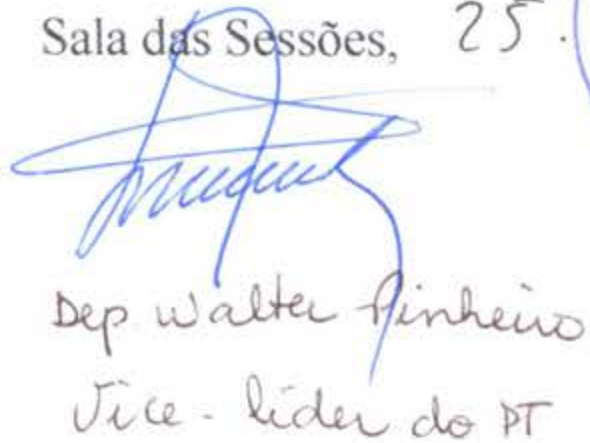 Sala das Sessões, 25.
Dep Walter Pinheiro
Vice-líder do PT